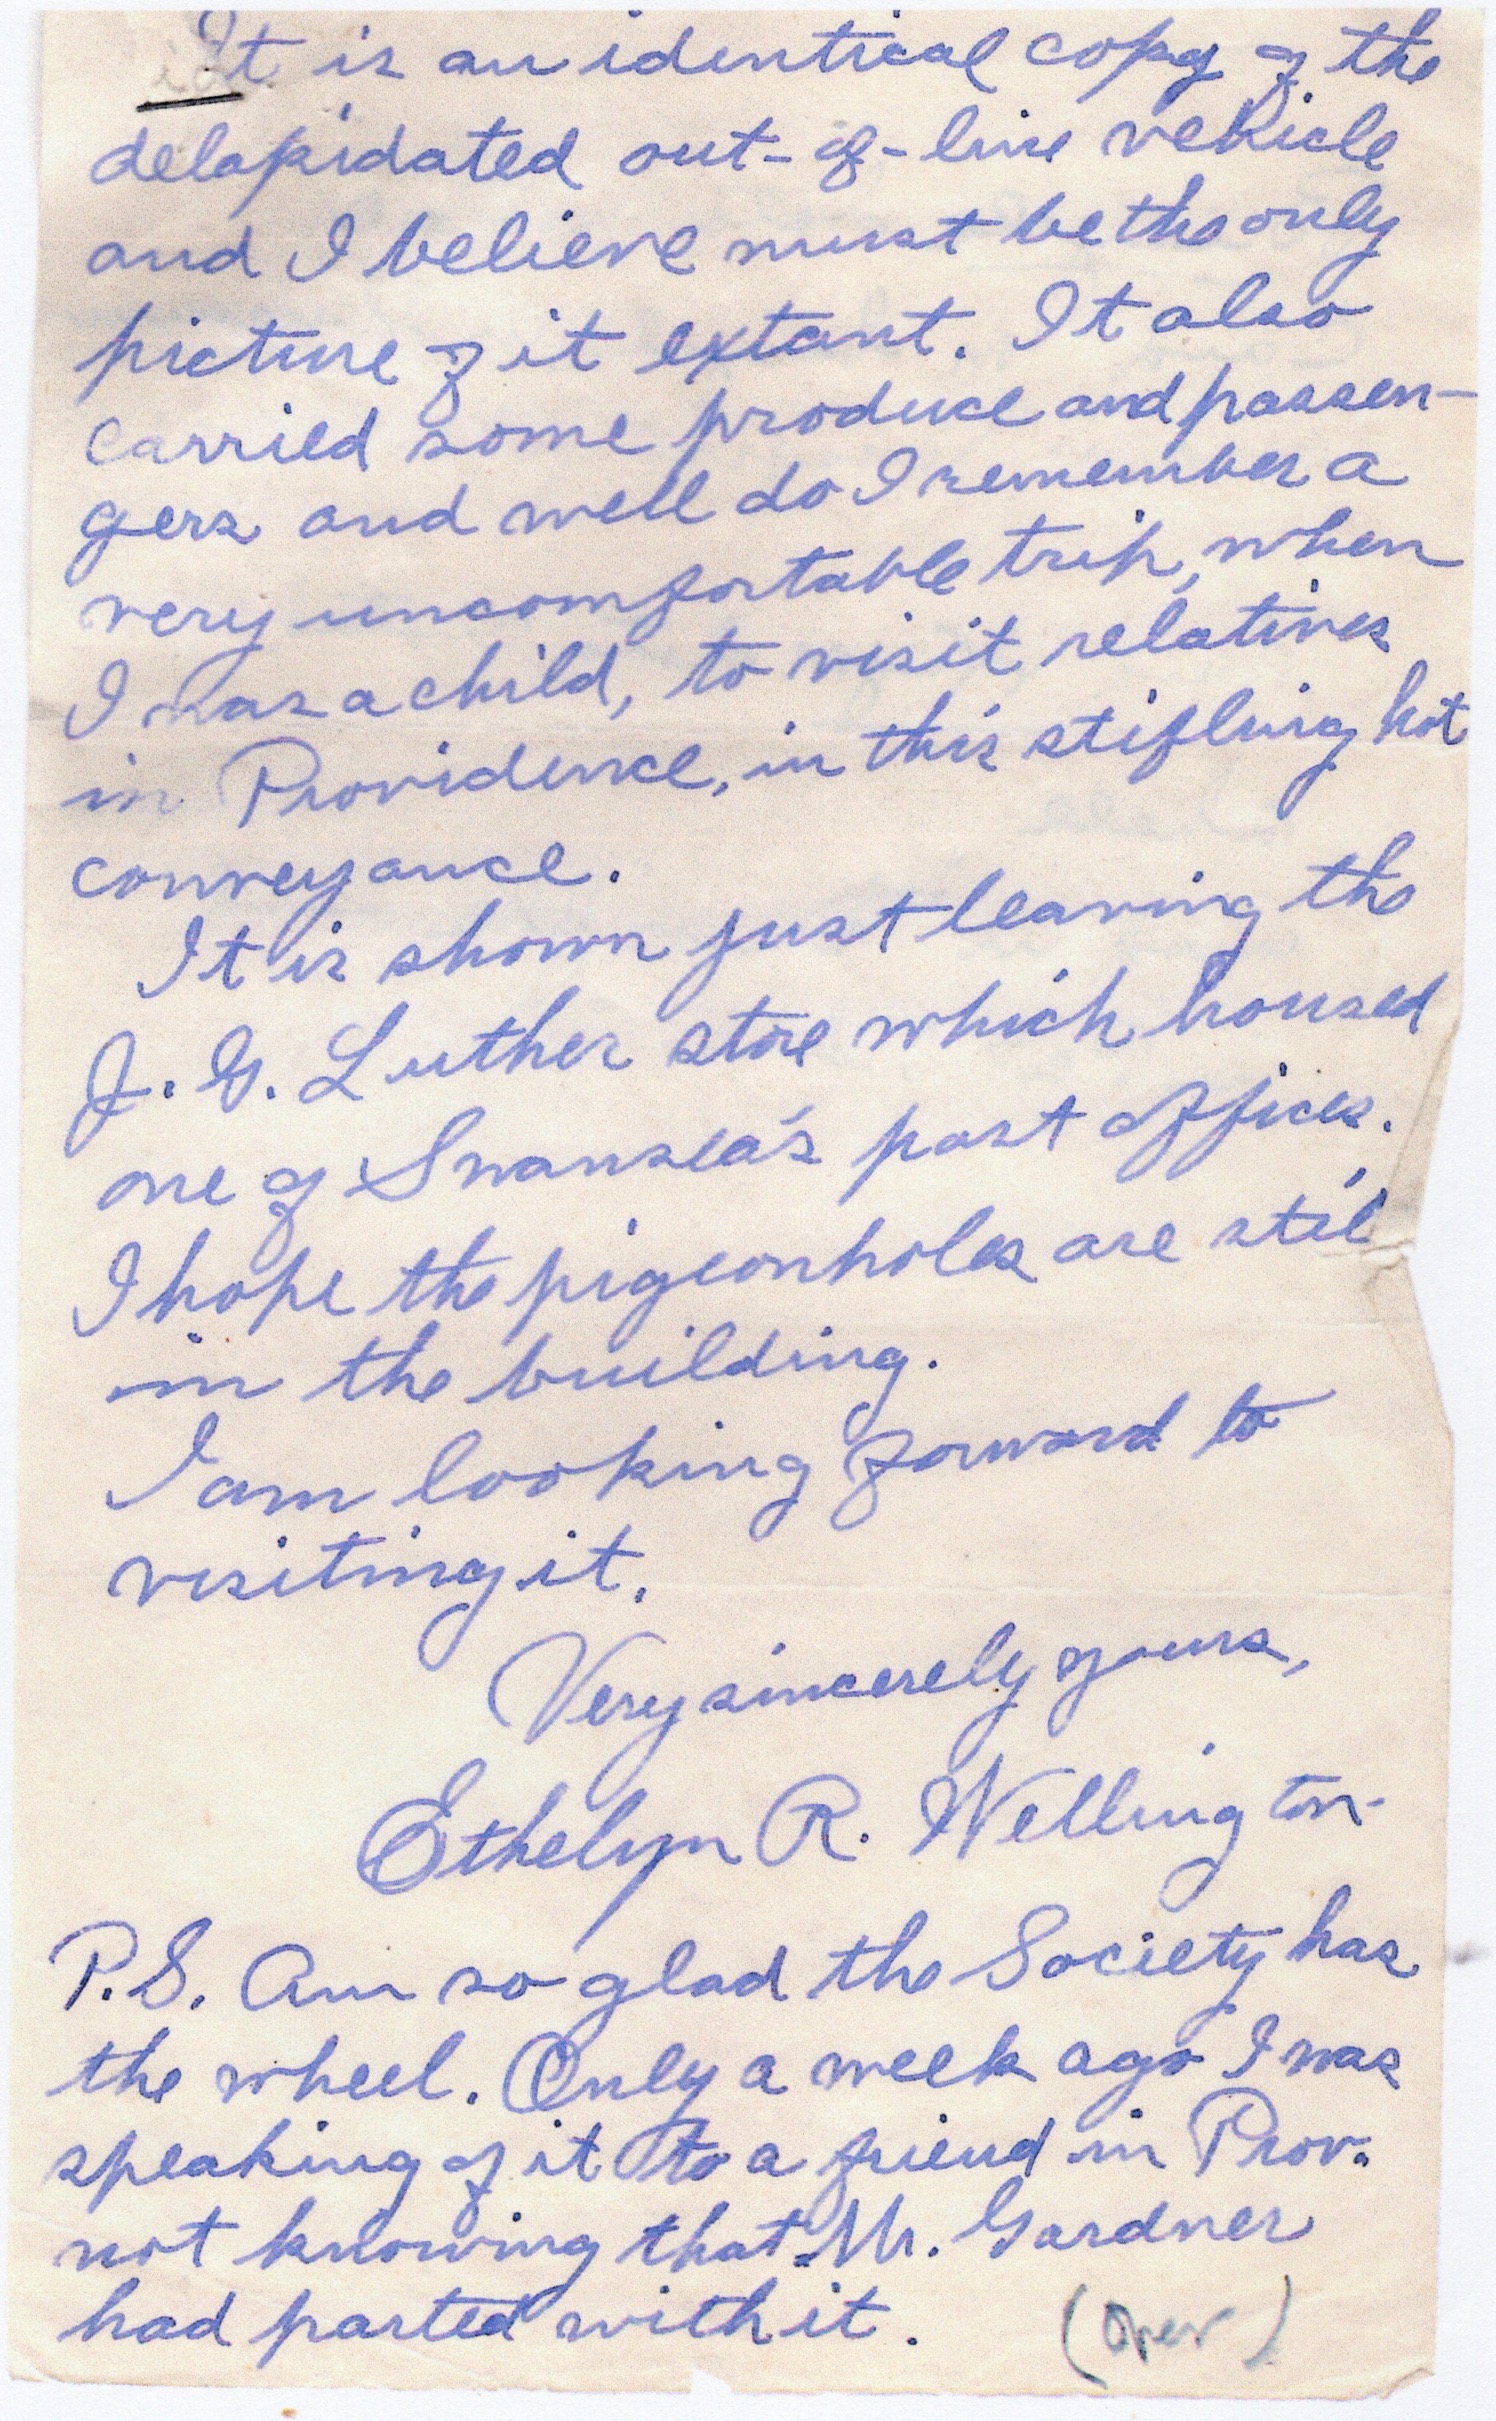 It is an identical copy of the
delapidated out-of-line vehicle
and I believe must be the only
picture of it extant. It also
carried some produce and passen-
gers and well do I remember a
very uncomfortable trip, when
I was a child, to visit relatives
in Providence, in this stifling hot
conveyance.
It is shown just leaving the
J. G. Luther store which housed
one of Swansea's post offices.
I hope the pigeonholes are still
in the building.
I am looking forward to
visiting it.
Very sincerely yours,
Ethelyn R. Wellington.
P.S. Am so glad the Society has
the wheel. Only a week ago I was
speaking of it to a friend in Prov.
not knowing that Mr. Gardner
had parted with it.
(over)